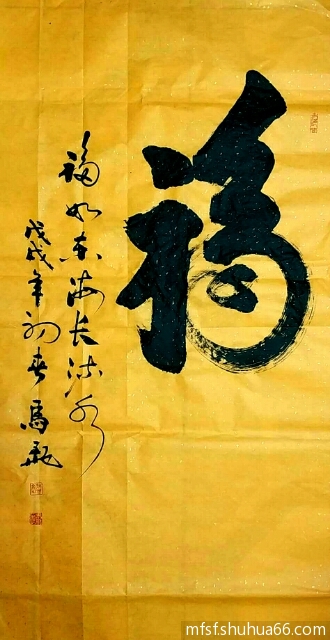 福
福如东海长流水
戊戌年初春马
mfsfshuhua66.com